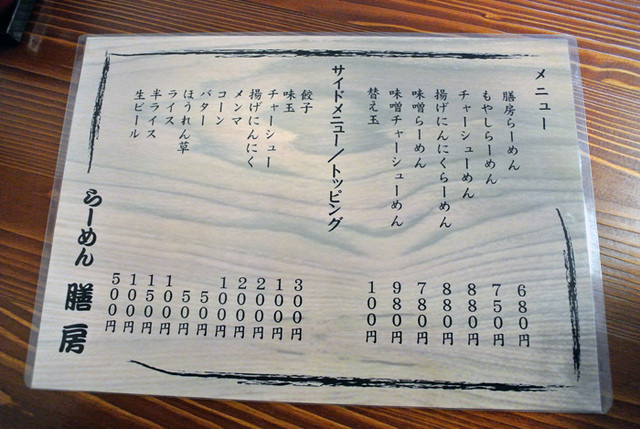 メニュー
膳房らーめん 680円
もやしらーめん 750円
チャーシューめん 880円
揚げにんにくらーめん 880円
味噌らーめん 780円
味噌チャーシューめん 980円
替え玉 100円
サイドメニュー／トッピング
餃子 300円
味玉 100円
チャーシュー 200円
揚げにんにく 200円
メンマ 100円
コーン 50円
バター 50円
ほうれん草 100円
ライス 150円
半ライス 100円
生ビール 500円
らーめん 膳房